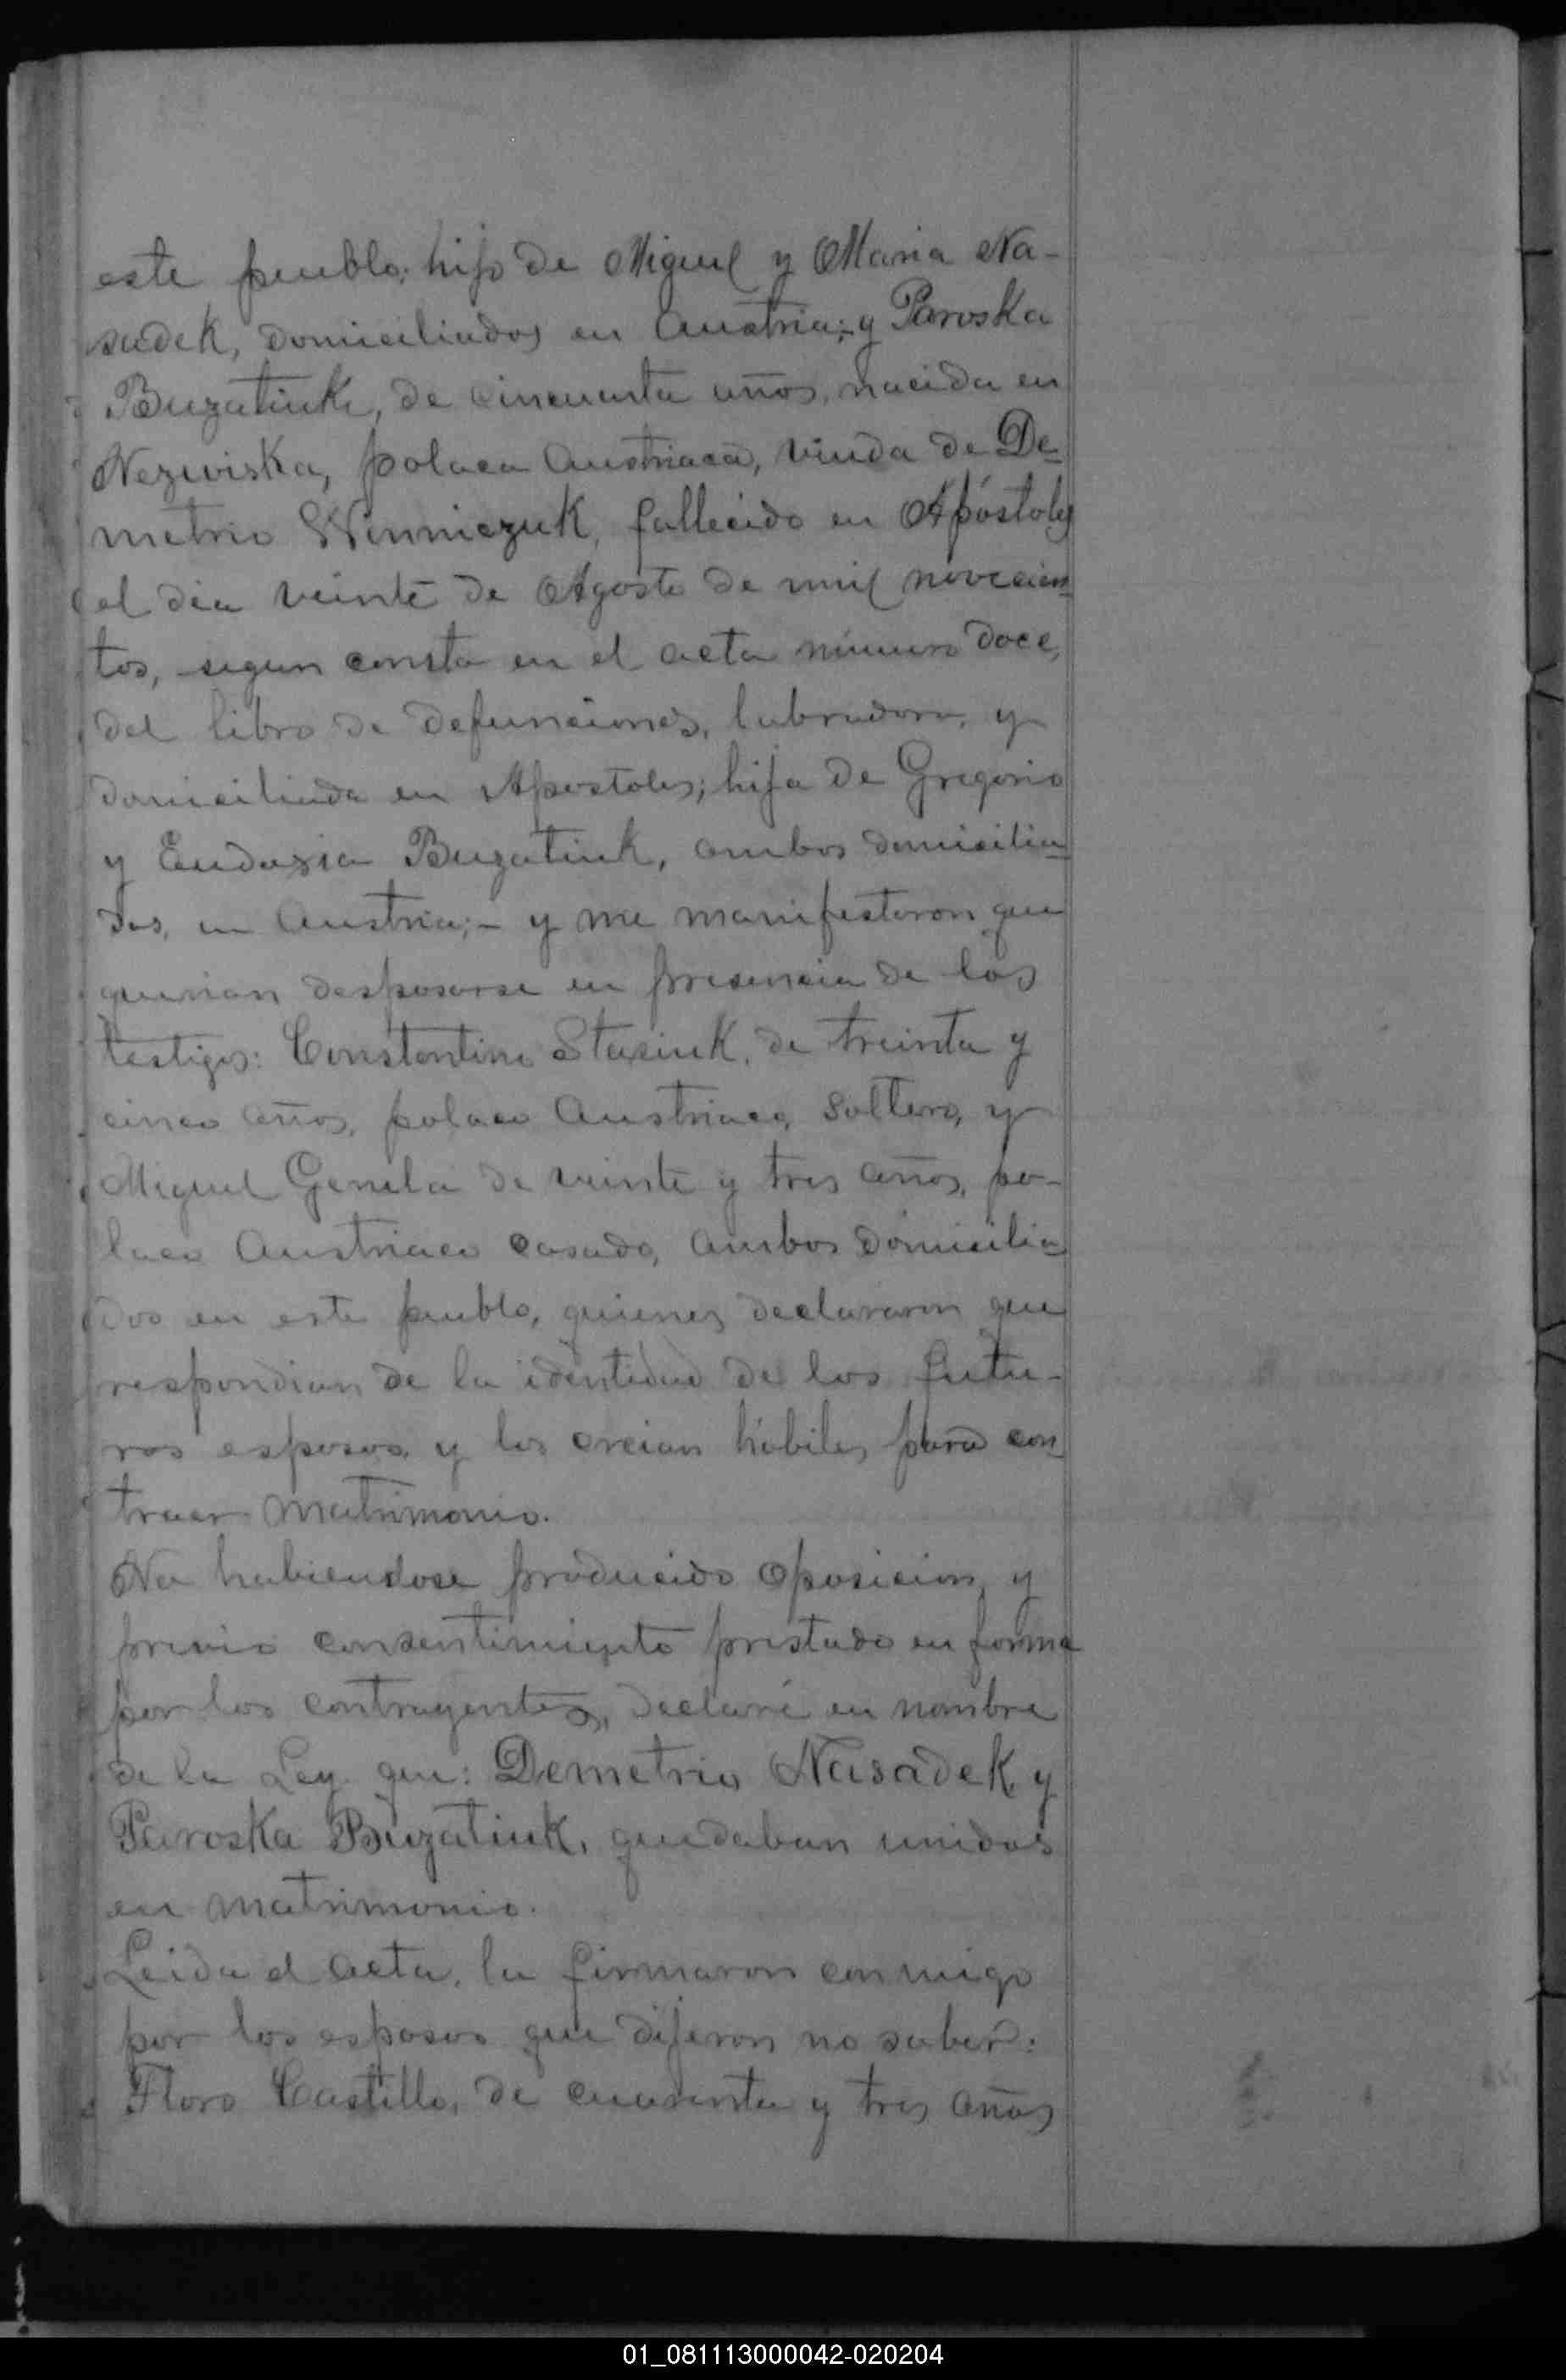 este pueblo; hijo de Miguel y Maria Na-
sadek, domiciliados en Austria;- y Paroska
Buzatiuk, de cincuenta años, nacida en
Nezwiska, polaca Austriaca, viuda de De-
metrio Winniczuk, fallecido en Apóstoles
el dia veinte de Agosto de mil novecien-
tos, segun consta en el acta número doce,
del libro de defunciones, labradora, y
domiciliada en Apostoles; hija de Gregorio
y Eudoxia Buzatiuk, ambos domicilia-
dos, en Austria;- y me manifestaron que
querian desposarse en presencia de los
testigos: Constantino Stasiuk, de treinta y
cinco años, polaco Austriaco, soltero, y
Miguel Genila de veinte y tres años, po-
laco Austriaco casado, ambos domicilia-
dos en este pueblo, quienes declararon que
respondian de la identidad de los futu-
ros esposos y los creian hábiles para con-
traer matrimonio.
No habiendose producido oposicion, y
previo consentimiento prestado en forma
por los contrayentes, declaré en nombre
de la Ley que: Demetrio Nasadek y
Paroska Buzatiuk, quedaban unidos
en matrimonio.
Leida el acta, la firmaron conmigo
por los esposos que dijeron no saber:
Floro Castillo, de cuarenta y tres años
01_081113000042-020204